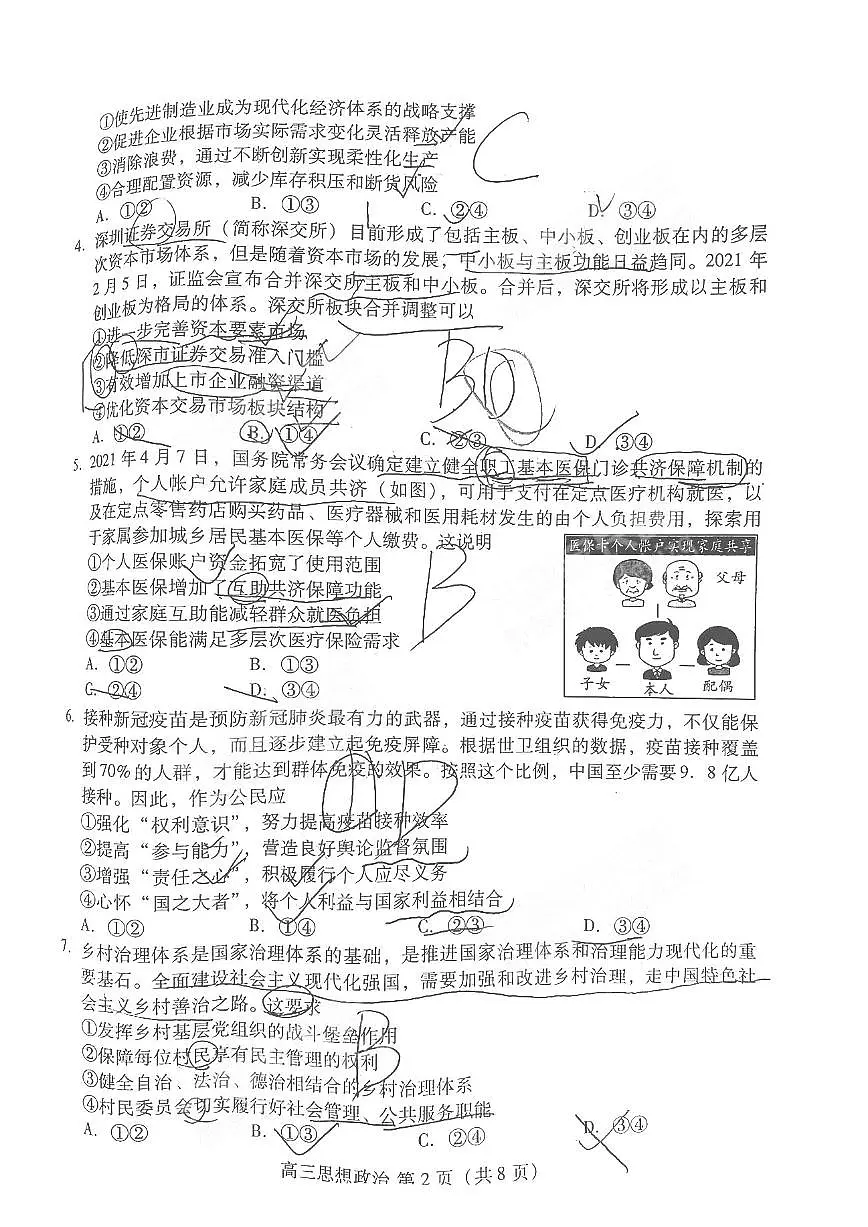 ①使先进制造业成为现代化经济体系的战略支撑
②促进企业根据市场实际需求变化灵活释放产能
③消除浪费，通过不断创新实现柔性化生产
④合理配置资源，减少库存积压和断货风险
A. ①② B. ①③ C. ②④ D. ③④
C
4. 深圳证券交易所（简称深交所）目前形成了包括主板、中小板、创业板在内的多层
次资本市场体系，但是随着资本市场的发展，中小板与主板功能日益趋同。2021 年
2月5日，证监会宣布合并深交所主板和中小板。合并后，深交所将形成以主板和
创业板为格局的体系。深交所板块合并调整可以
①进一步完善资本要素市场
②降低深市证券交易准入门槛
③有效增加上市企业融资渠道
④优化资本交易市场板块结构
A. ①② B. ①④ C. ②③ D. ③④
B
5. 2021年4月7日，国务院常务会议确定建立健全职工基本医保门诊共济保障机制的
措施，个人帐户允许家庭成员共济（如图），可用于支付在定点医疗机构就医，以
及在定点零售药店购买药品、医疗器械和医用耗材发生的由个人负担费用，探索用
于家属参加城乡居民基本医保等个人缴费。这说明
①个人医保账户资金拓宽了使用范围
②基本医保增加了互助共济保障功能
③通过家庭互助能减轻群众就医负担
④基本医保能满足多层次医疗保险需求
A. ①② B. ①③
C. ②④ D. ③④
B
医保卡个人帐户实现家庭共享
父母
子女 本人 配偶
6. 接种新冠疫苗是预防新冠肺炎最有力的武器，通过接种疫苗获得免疫力，不仅能保
护受种对象个人，而且逐步建立起免疫屏障。根据世卫组织的数据，疫苗接种覆盖
到70%的人群，才能达到群体免疫的效果。按照这个比例，中国至少需要9．8亿人
接种。因此，作为公民应
①强化“权利意识”，努力提高疫苗接种效率
②提高“参与能力”，营造良好舆论监督氛围
③增强“责任之心”，积极履行个人应尽义务
④心怀“国之大者”，将个人利益与国家利益相结合
A. ①② B. ①④ C. ②③ D. ③④
D
7. 乡村治理体系是国家治理体系的基础，是推进国家治理体系和治理能力现代化的重
要基石。全面建设社会主义现代化强国，需要加强和改进乡村治理，走中国特色社
会主义乡村善治之路。这要求
①发挥乡村基层党组织的战斗堡垒作用
②保障每位村民享有民主管理的权利
③健全自治、法治、德治相结合的乡村治理体系
④村民委员会切实履行好社会管理、公共服务职能
A. ①② B. ①③ C. ②④ D. ③④
B
高三思想政治 第 2 页（共8页）